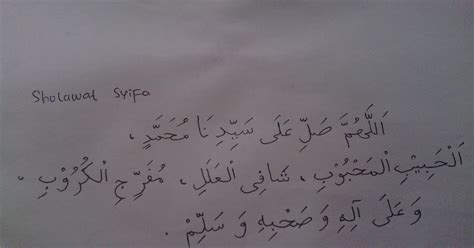 Sholawat Syifa
اَللّٰهُمَّ صَلِّ عَلَى سَيِّدِ نَا مُحَمَّدٍ ،
اَلْحَبِيْبِ الْمَحْبُوْبِ ، شَافِى الْعِلَلِ ، مُفَرِّجِ الْكُرُوْبِ -
وَ عَلَى آلِهِ وَ صَحْبِهِ وَ سَلِّمْ .